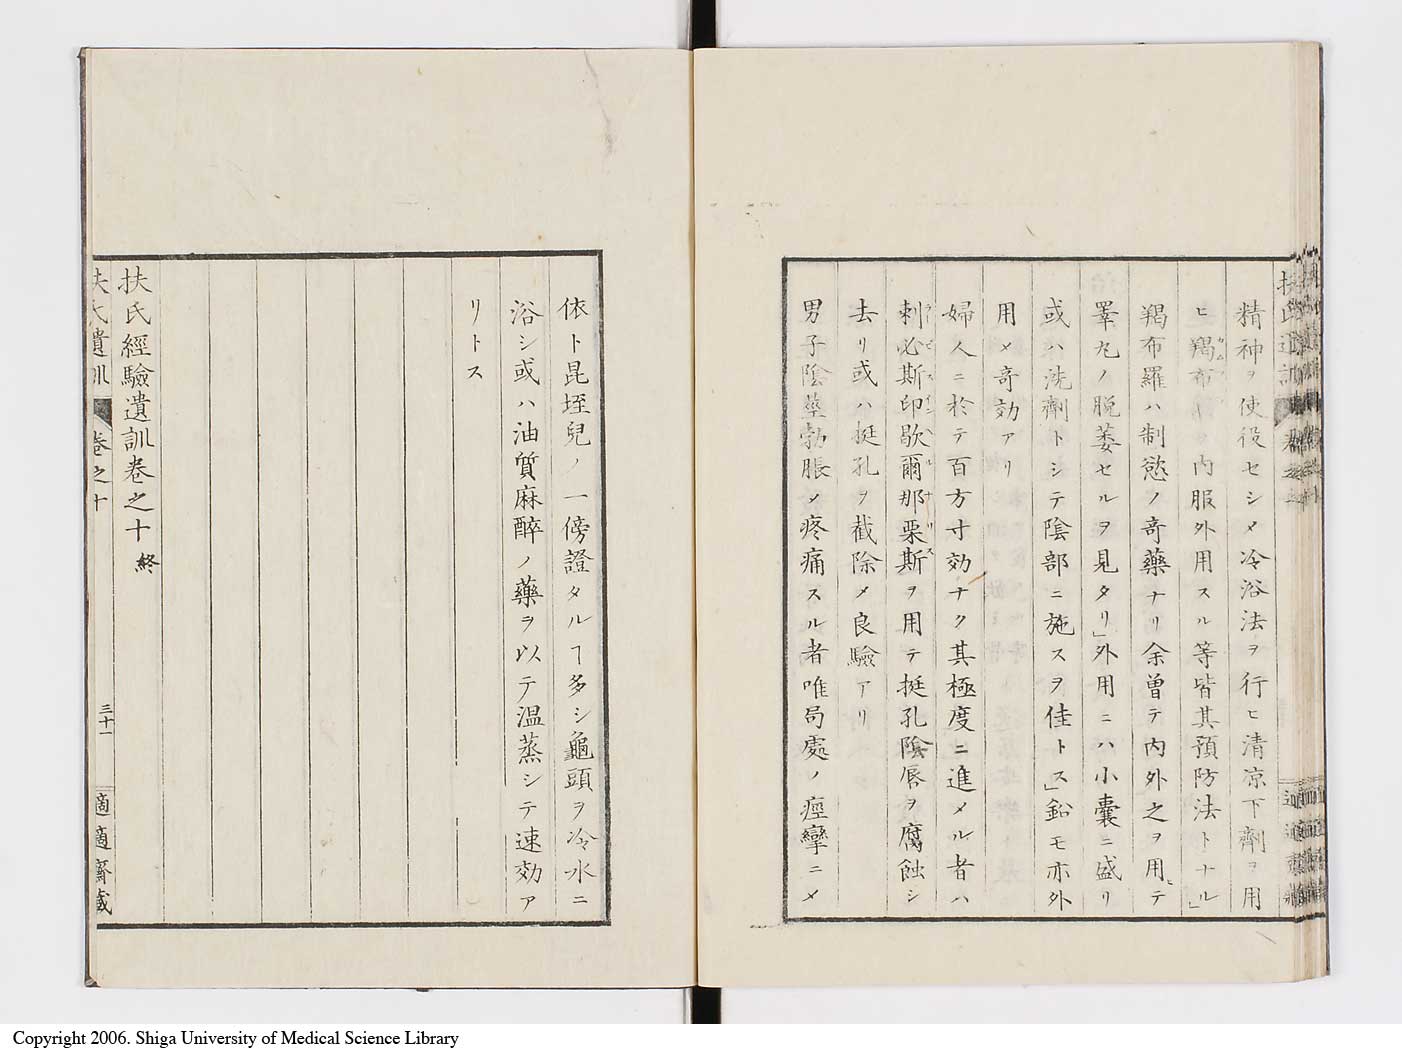 精神ヲ使役セシメ冷浴法ヲ行ヒ清凉下劑ヲ用
ヒ羯布羅ヲ内服外用スル等皆其預防法トナル」
羯布羅ハ制慾ノ奇藥ナリ余曽テ内外之ヲ用ヒテ
睪丸ノ脱萎セルヲ見タリ」外用ニハ小囊ニ盛リ
或ハ洗劑トシテ陰部ニ施スヲ佳トス」鉛モ亦外
用メ奇効アリ
婦人ニ於テ百方寸効ナク其極度ニ進メル者ハ
刺必斯印歇爾那栗斯ヲ用テ挺孔陰唇ヲ腐蝕シ
去リ或ハ挺孔ヲ截除メ良驗アリ
男子陰莖勃脹メ疼痛スル者唯局處ノ痙攣ニメ
依卜昆垤兒ノ一傍證タルヿ多シ龜頭ヲ冷水ニ
浴シ或ハ油質麻醉ノ藥ヲ以テ温蒸シテ速効ア
リトス
扶氏經驗遺訓卷之十 終
扶氏遺訓 卷之十 三十一 適適齋藏
Copyright 2006. Shiga University of Medical Science Library